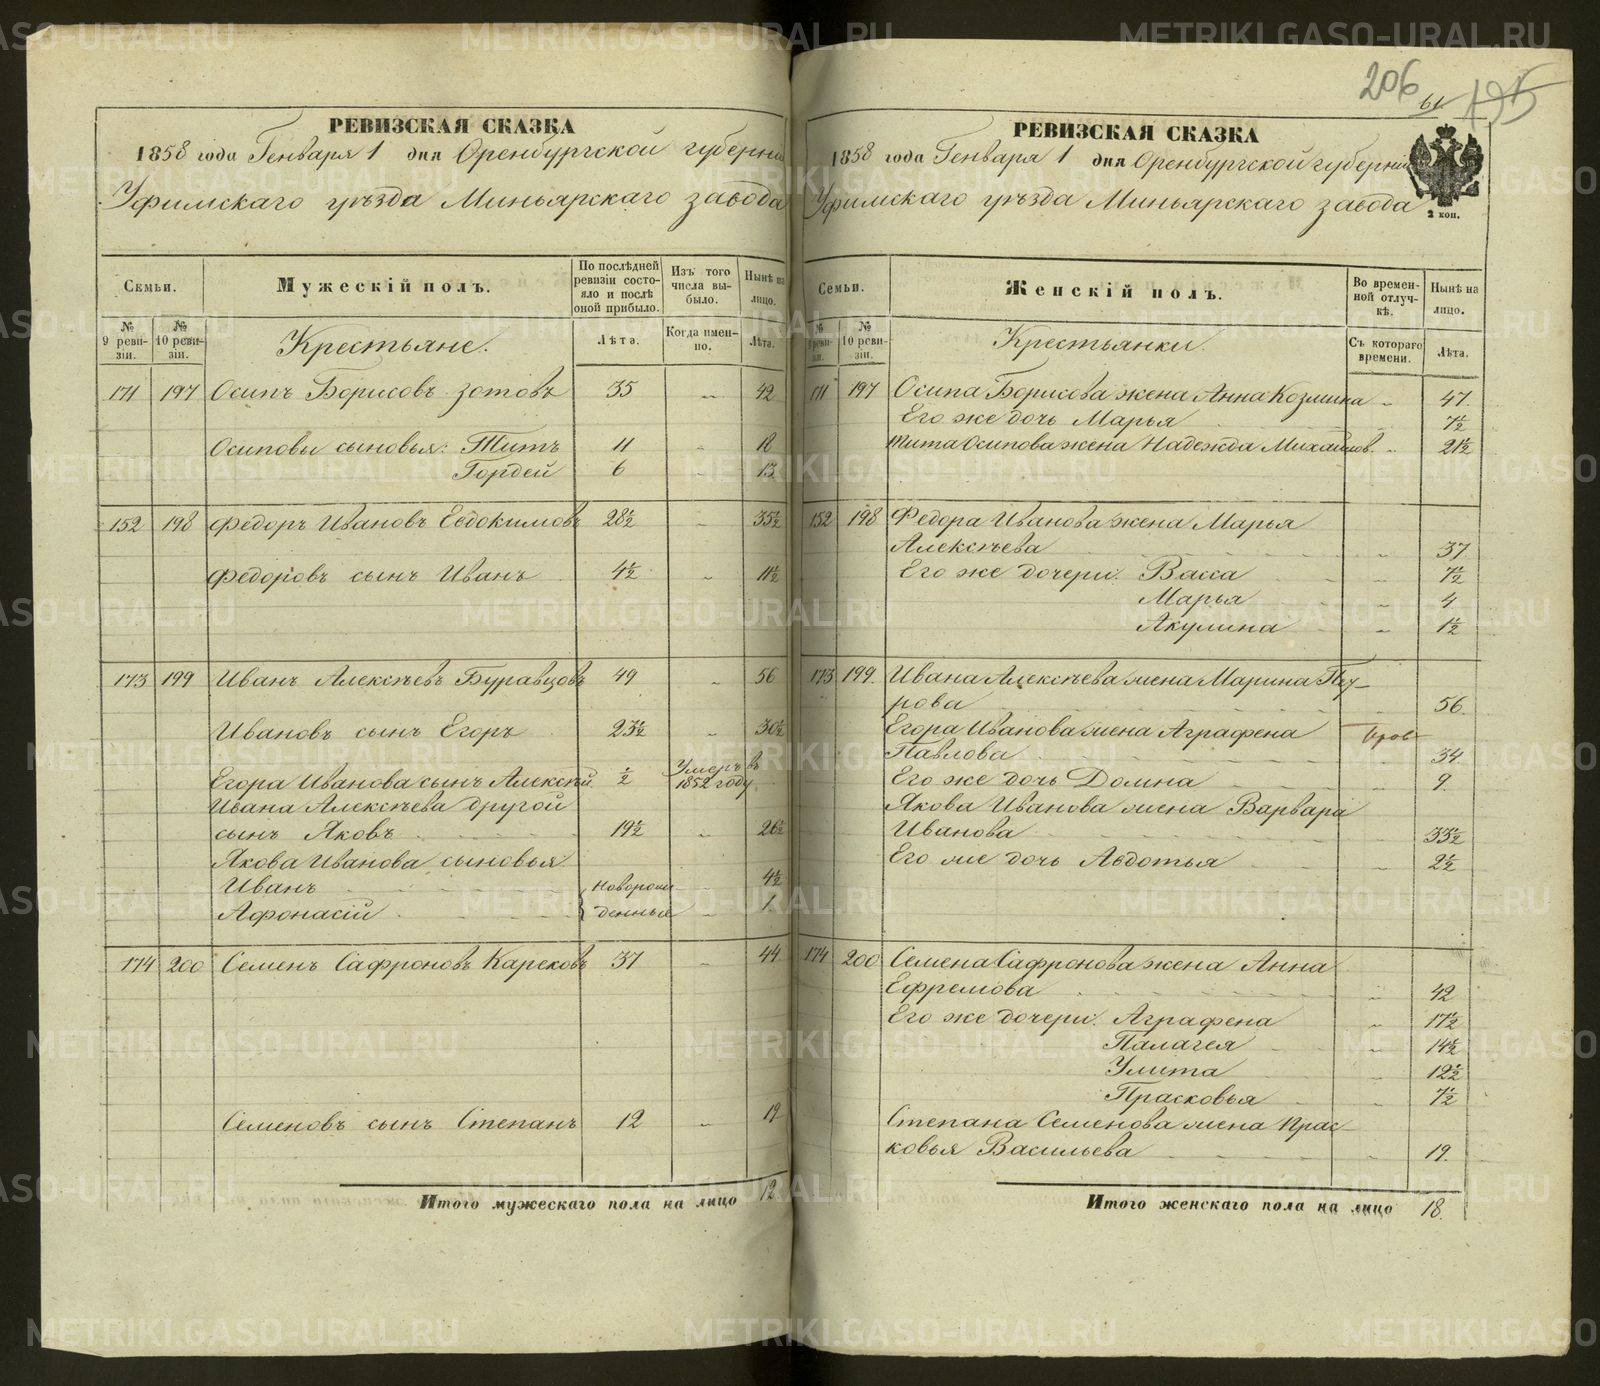 206 61 195
РЕВИЗСКАЯ СКАЗКА
1858 года Генваря 1 дня Оренбургской губерніи
Уфимскаго уѣзда Миньярскаго завода
Семьи.
Мужескій полъ.
По послѣдней ревизіи состояло и послѣ оной прибыло.
Изъ того числа выбыло.
Нынѣ на лицо.
№ 9 ревизіи.
№ 10 ревизіи.
Крестьяне.
Лѣта.
Когда именно.
Лѣта.
171 197 Осипъ Борисовъ Зотовъ 35 „ 42
Осиповы сыновья: Титъ 11 „ 18
Гордей 6 „ 13
152 198 Федоръ Ивановъ Евдокимовъ 28½ „ 35½
Федоровъ сынъ Иванъ 4½ „ 11½
173 199 Иванъ Алексѣевъ Буравцовъ 49 „ 56
Ивановъ сынъ Егоръ 23½ „ 30½
Егора Иванова сынъ Алексѣй ½ Умеръ въ 1852 году
Ивана Алексѣева другой
сынъ Яковъ 19½ „ 26½
Якова Иванова сыновья
Иванъ новорож 4½
Афонасій денные „ 1
174 200 Семенъ Сафроновъ Карековъ 37 „ 44
Семеновъ сынъ Степанъ 12 „ 19
Итого мужескаго пола на лицо 12
РЕВИЗСКАЯ СКАЗКА
1858 года Генваря 1 дня Оренбургской губерніи
Уфимскаго уѣзда Миньярскаго завода
2 коп.
Семьи.
Женскій полъ.
Во временной отлучкѣ.
Нынѣ на лицо.
№ 9 ревизіи.
№ 10 ревизіи.
Крестьянки.
Съ котораго времени.
Лѣта.
171 197 Осипа Борисова жена Анна Козмина „ 47
Его же дочь Марья 7½
Тита Осипова жена Надежда Михайлов. „ 21½
152 198 Федора Иванова жена Марья
Алексѣева „ 37
Его же дочери: Васса „ 7½
Марья „ 4
Акулина „ 1½
173 199. Ивана Алексѣева жена Марина Пу-
рова „ 56.
Егора Иванова жена Аграфена
Павлова 34
Его же дочь Домна 9.
Якова Иванова жена Варвара
Иванова 33½
Его же дочь Авдотья 2½
174 200 Семена Сафронова жена Анна
Ефремова „ 42
Его же дочери: Аграфена „ 17½
Палагея „ 14½
Улита „ 12½
Прасковья „ 7½
Степана Семенова жена Прас
ковья Васильева 19.
Итого женскаго пола на лицо 18.
METRIKI.GASO-URAL.RU